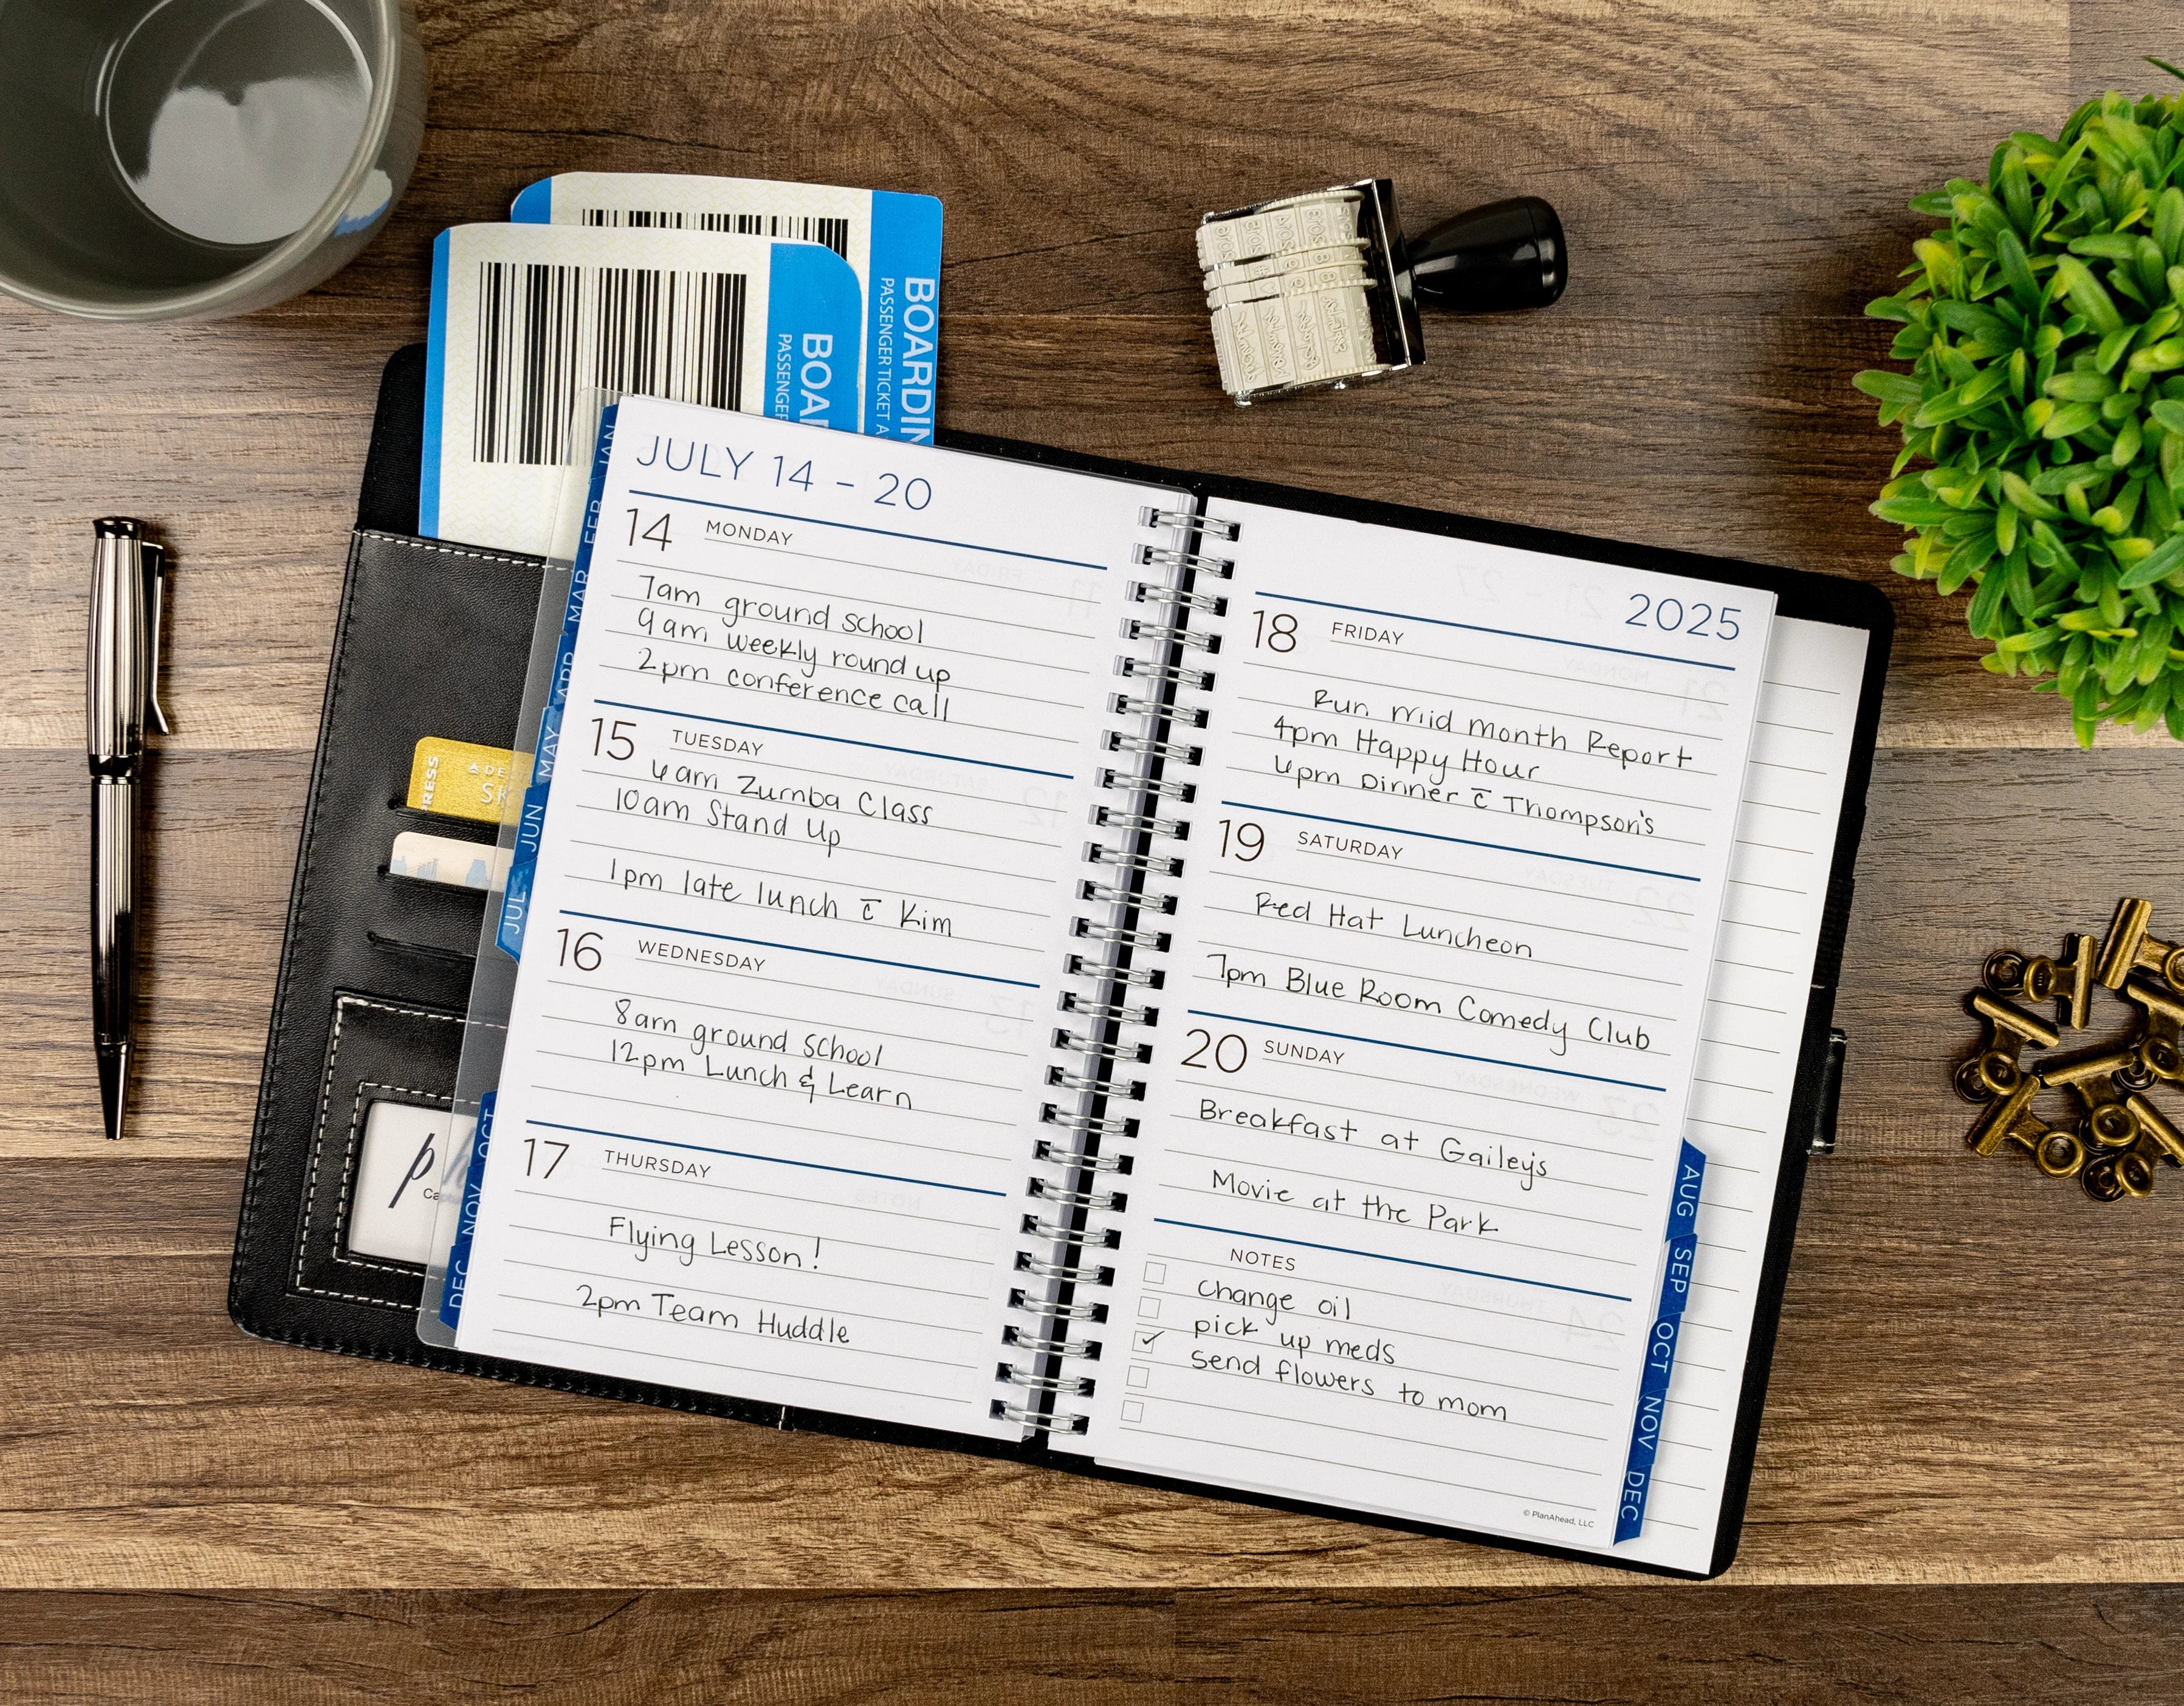 BOARDIN
PASSENGER TICKET A
BOAR
PASSENGER
JULY 14 - 20
14 MONDAY
7am ground school
9am weekly round up
2pm conference call
15 TUESDAY
6am Zumba Class
10am Stand Up
1pm late lunch c̄ Kim
16 WEDNESDAY
8am ground school
12pm Lunch & Learn
17 THURSDAY
Flying Lesson!
2pm Team Huddle
2025
18 FRIDAY
Run mid month Report
4pm Happy Hour
6pm Dinner c̄ Thompson's
19 SATURDAY
Red Hat Luncheon
7pm Blue Room Comedy Club
20 SUNDAY
Breakfast at Gailey's
Movie at the Park
NOTES
change oil
pick up meds
send flowers to mom
© PlanAhead, LLC
JAN
FEB
MAR
APR
MAY
JUN
JUL
OCT
NOV
DEC
AUG
SEP
OCT
NOV
DEC
RESS
SK
Ca